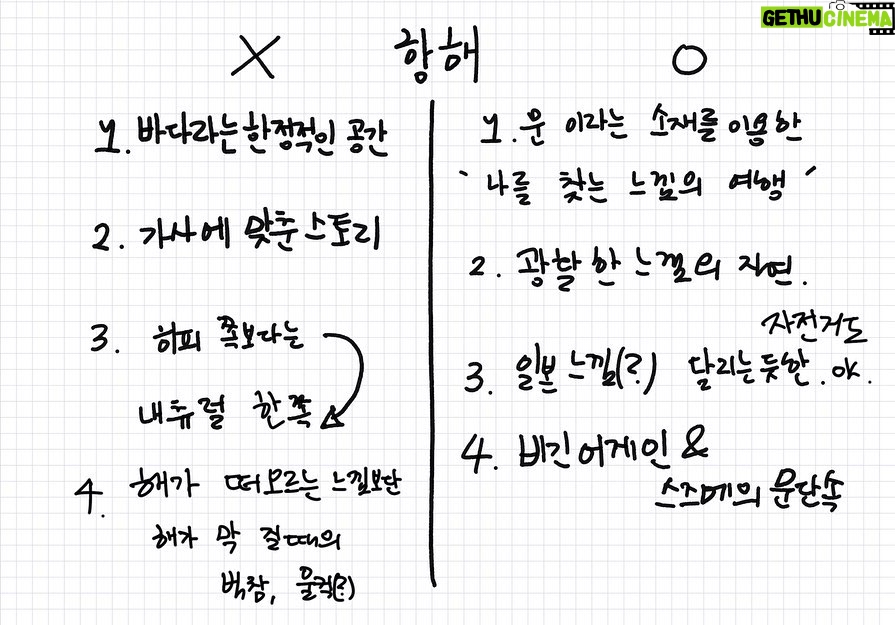 GETHU CINEMA
X 항해 O
1. 바다라는 한정적인 공간
2. 가사에 맞춘 스토리
3. 히피 쪽보다는
내츄럴 한쪽
4. 해가 떠오르는 느낌보단
해가 막 질때의
벅참, 울컥(?)
1. 문 이라는 소재를 이용한
' 나를 찾는 느낌의 여행 '
2. 광활한 느낌의 자연.
자전거도
3. 일본 느낌(?) 달리는듯한. OK.
4. 비긴어게인 &
스즈메의 문단속